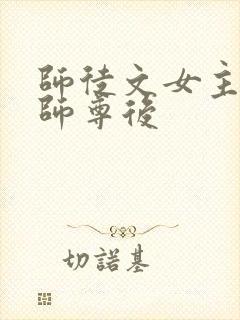 師徒文女主
師尊後
切諾基